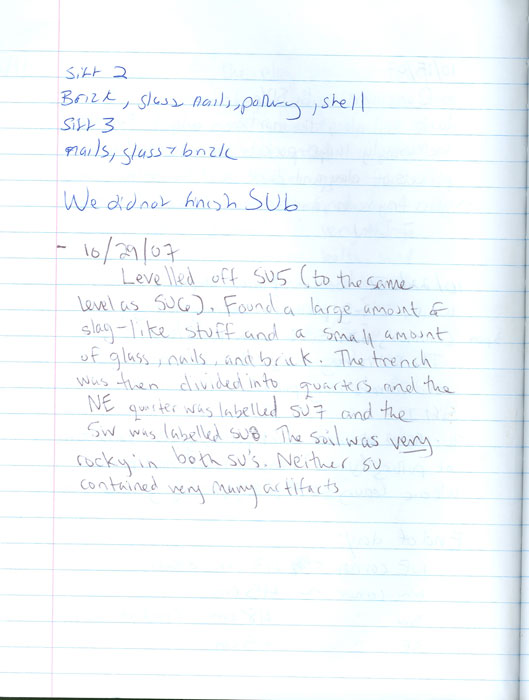 Sift 2
Brick, glass nails, pottery, shell
Sift 3
nails, glass + brick
We did not finish SU6
- 10/29/07
Levelled off SU5 (to the same
level as SU6). Found a large amount of
slag-like stuff and a small amount
of glass, nails, and brick. The trench
was then divided into quarters and the
NE quarter was labelled SU7 and the
SW was labelled SU8. The soil was very
rocky in both SU's. Neither SU
contained very many artifacts